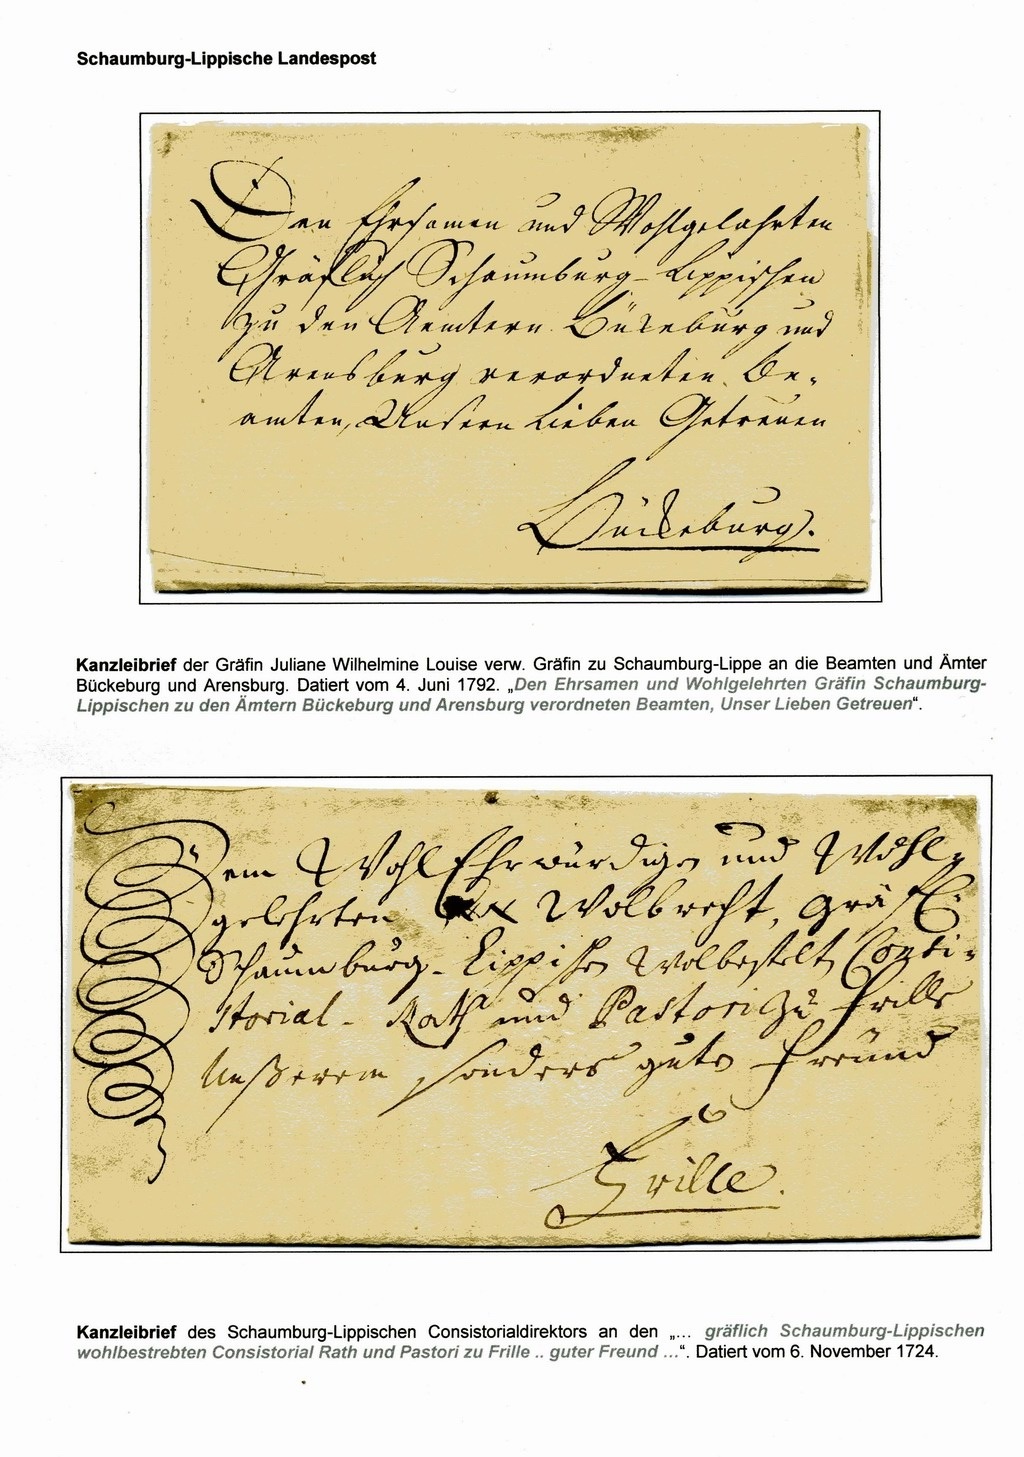 Schaumburg-Lippische Landespost
Den Ehrsamen und Wohlgelahrten
Gräflich Schaumburg-Lippischen
zu den Aemtern Bückeburg und
Arensburg verordneten Be-
amten, Unsern Lieben Getreuen
Bückeburg.
Kanzleibrief der Gräfin Juliane Wilhelmine Louise verw. Gräfin zu Schaumburg-Lippe an die Beamten und Ämter
Bückeburg und Arensburg. Datiert vom 4. Juni 1792. „Den Ehrsamen und Wohlgelehrten Gräfin Schaumburg-
Lippischen zu den Ämtern Bückeburg und Arensburg verordneten Beamten, Unser Lieben Getreuen“.
Dem WohlEhrwürdigen und Wohl-
gelehrten Wolbrecht, gräfl.
Schaumburg-Lippischen Wolbestelten Consi-
storial-Rath und Pastori zu Frille
Unßerem sonders guten Freund
Frille.
Kanzleibrief des Schaumburg-Lippischen Consistorialdirektors an den „... gräflich Schaumburg-Lippischen
wohlbestrebten Consistorial Rath und Pastori zu Frille .. guter Freund ...“. Datiert vom 6. November 1724.